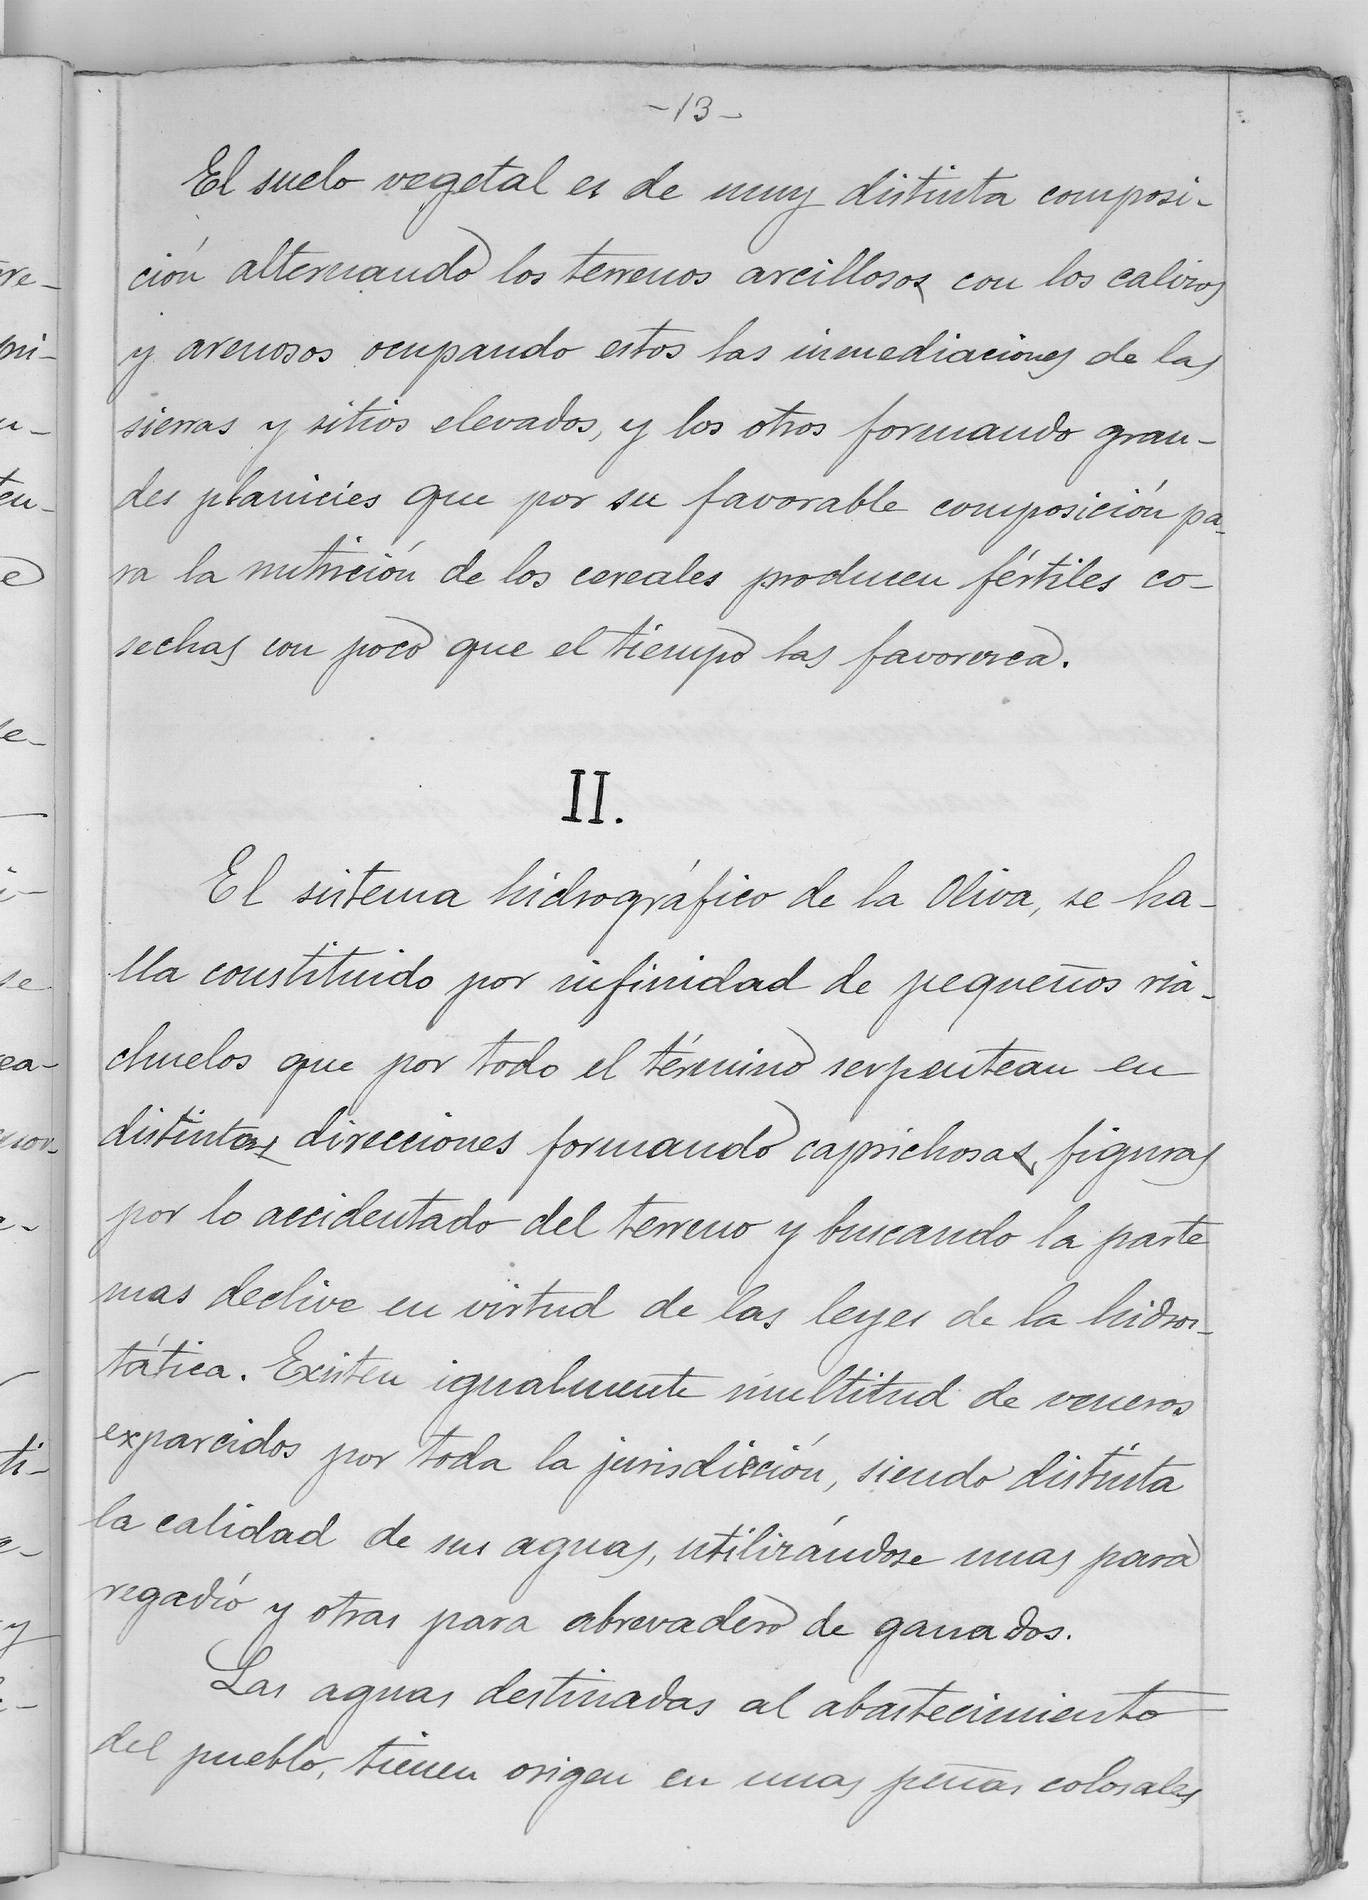 -13-
El suelo vegetal es de muy distinta composi-
ción alternando los terrenos arcillosos con los calizos
y arenosos ocupando estos las inmediaciones de las
sierras y sitios elevados, y los otros formando gran-
des planicies que por su favorable composición pa-
ra la nutrición de los cereales producen fértiles co-
sechas con poco que el tiempo las favorezca.
II.
El sistema hidrográfico de la Oliva, se ha-
lla constituido por infinidad de pequeños ria-
chuelos que por todo el término serpentean en
distintas direcciones formando caprichosas figuras
por lo accidentado del terreno y buscando la parte
mas declive en virtud de las leyes de la hidros-
tática. Existen igualmente multitud de veneros
exparcidos por toda la jurisdicción, siendo distinta
la calidad de sus aguas, utilizándose unas para
regadío y otras para abrevadero de ganados.
Las aguas destinadas al abastecimiento
del pueblo, tienen origen en unas peñas colosales